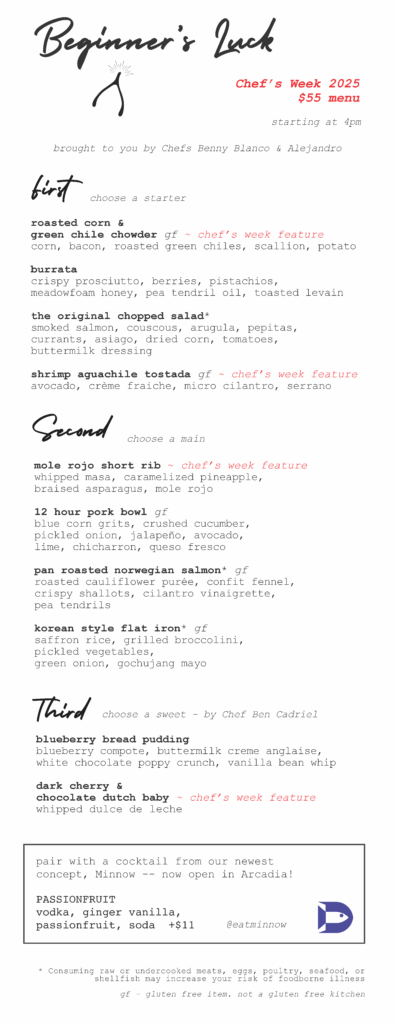 Beginner's Luck
Chef's Week 2025
$55 menu
starting at 4pm
brought to you by Chefs Benny Blanco & Alejandro
first choose a starter
roasted corn &
green chile chowder gf ~ chef's week feature
corn, bacon, roasted green chiles, scallion, potato
burrata
crispy prosciutto, berries, pistachios,
meadowfoam honey, pea tendril oil, toasted levain
the original chopped salad*
smoked salmon, couscous, arugula, pepitas,
currants, asiago, dried corn, tomatoes,
buttermilk dressing
shrimp aguachile tostada gf ~ chef's week feature
avocado, crème fraiche, micro cilantro, serrano
Second choose a main
mole rojo short rib ~ chef's week feature
whipped masa, caramelized pineapple,
braised asparagus, mole rojo
12 hour pork bowl gf
blue corn grits, crushed cucumber,
pickled onion, jalapeño, avocado,
lime, chicharron, queso fresco
pan roasted norwegian salmon* gf
roasted cauliflower purée, confit fennel,
crispy shallots, cilantro vinaigrette,
pea tendrils
korean style flat iron* gf
saffron rice, grilled broccolini,
pickled vegetables,
green onion, gochujang mayo
Third choose a sweet - by Chef Ben Cadriel
blueberry bread pudding
blueberry compote, buttermilk creme anglaise,
white chocolate poppy crunch, vanilla bean whip
dark cherry &
chocolate dutch baby ~ chef's week feature
whipped dulce de leche
pair with a cocktail from our newest
concept, Minnow -- now open in Arcadia!
PASSIONFRUIT
vodka, ginger vanilla,
passionfruit, soda +$11 @eatminnow
* Consuming raw or undercooked meats, eggs, poultry, seafood, or
shellfish may increase your risk of foodborne illness
gf - gluten free item. not a gluten free kitchen